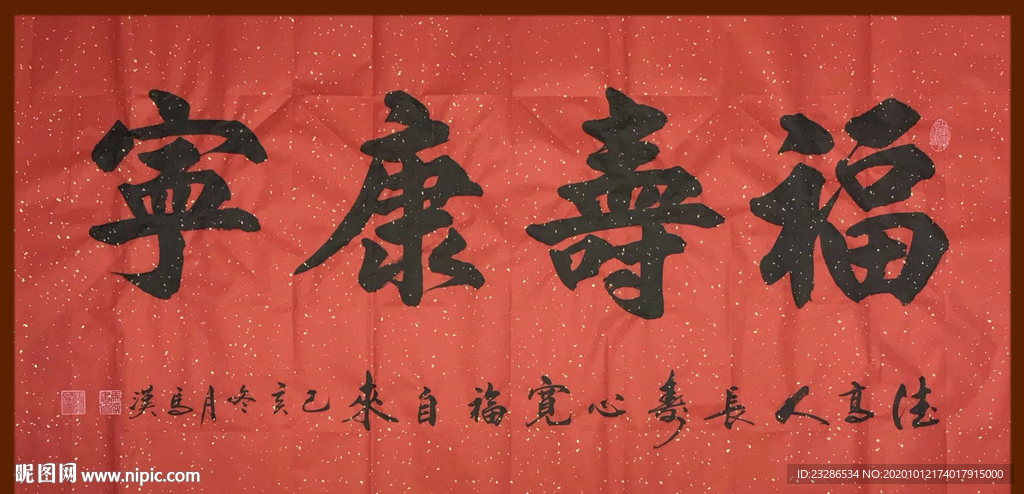 福壽康寧
德高人長壽心寬福自來 己亥冬月馬漢
昵图网 www.nipic.com
ID:23286534 NO:20201012174017915000